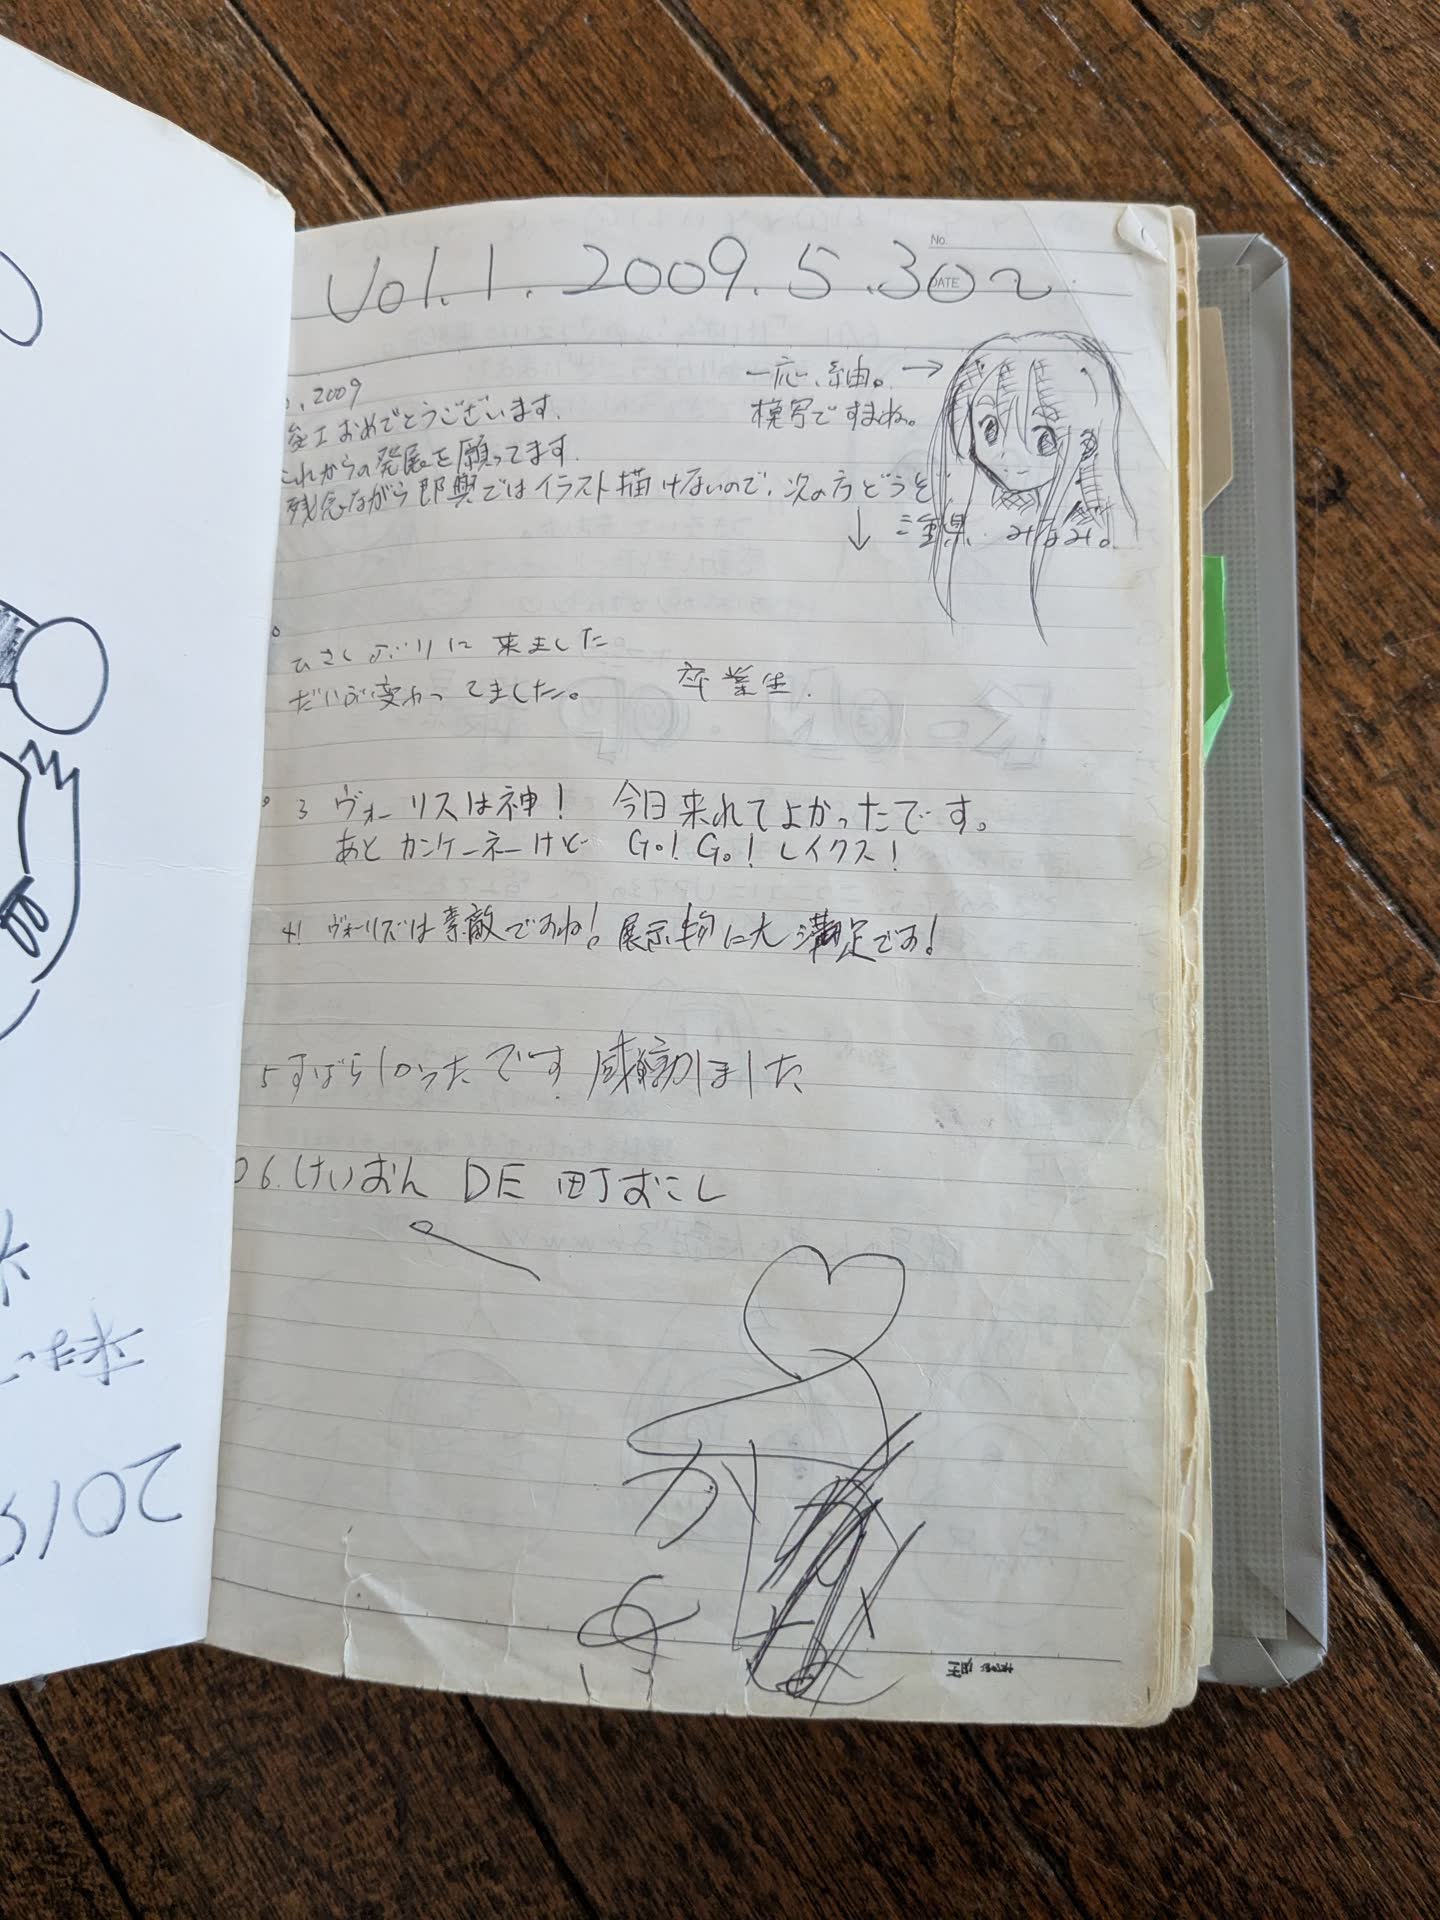 Vol.1. 2009.5.30~
No.
DATE
, 2009
竣工おめでとうございます.
これからの発展を願ってます.
残念ながら即興ではイラスト描けないので、次の方どうぞ
↓
一応、紬。→
模写ですまね。
三重県. みなみ。
ひさしぶりに来ました
だいぶ変わってました。 卒業生.
3 ヴォーリスは神! 今日来れてよかったです。
あとカンケーネーけど Go! Go! レイクス!
ヴォーリズは素敵ですね! 展示物に大満足です!
5 すばらしかったです. 感動しました
06. けいおん DE 町おこし
か
201